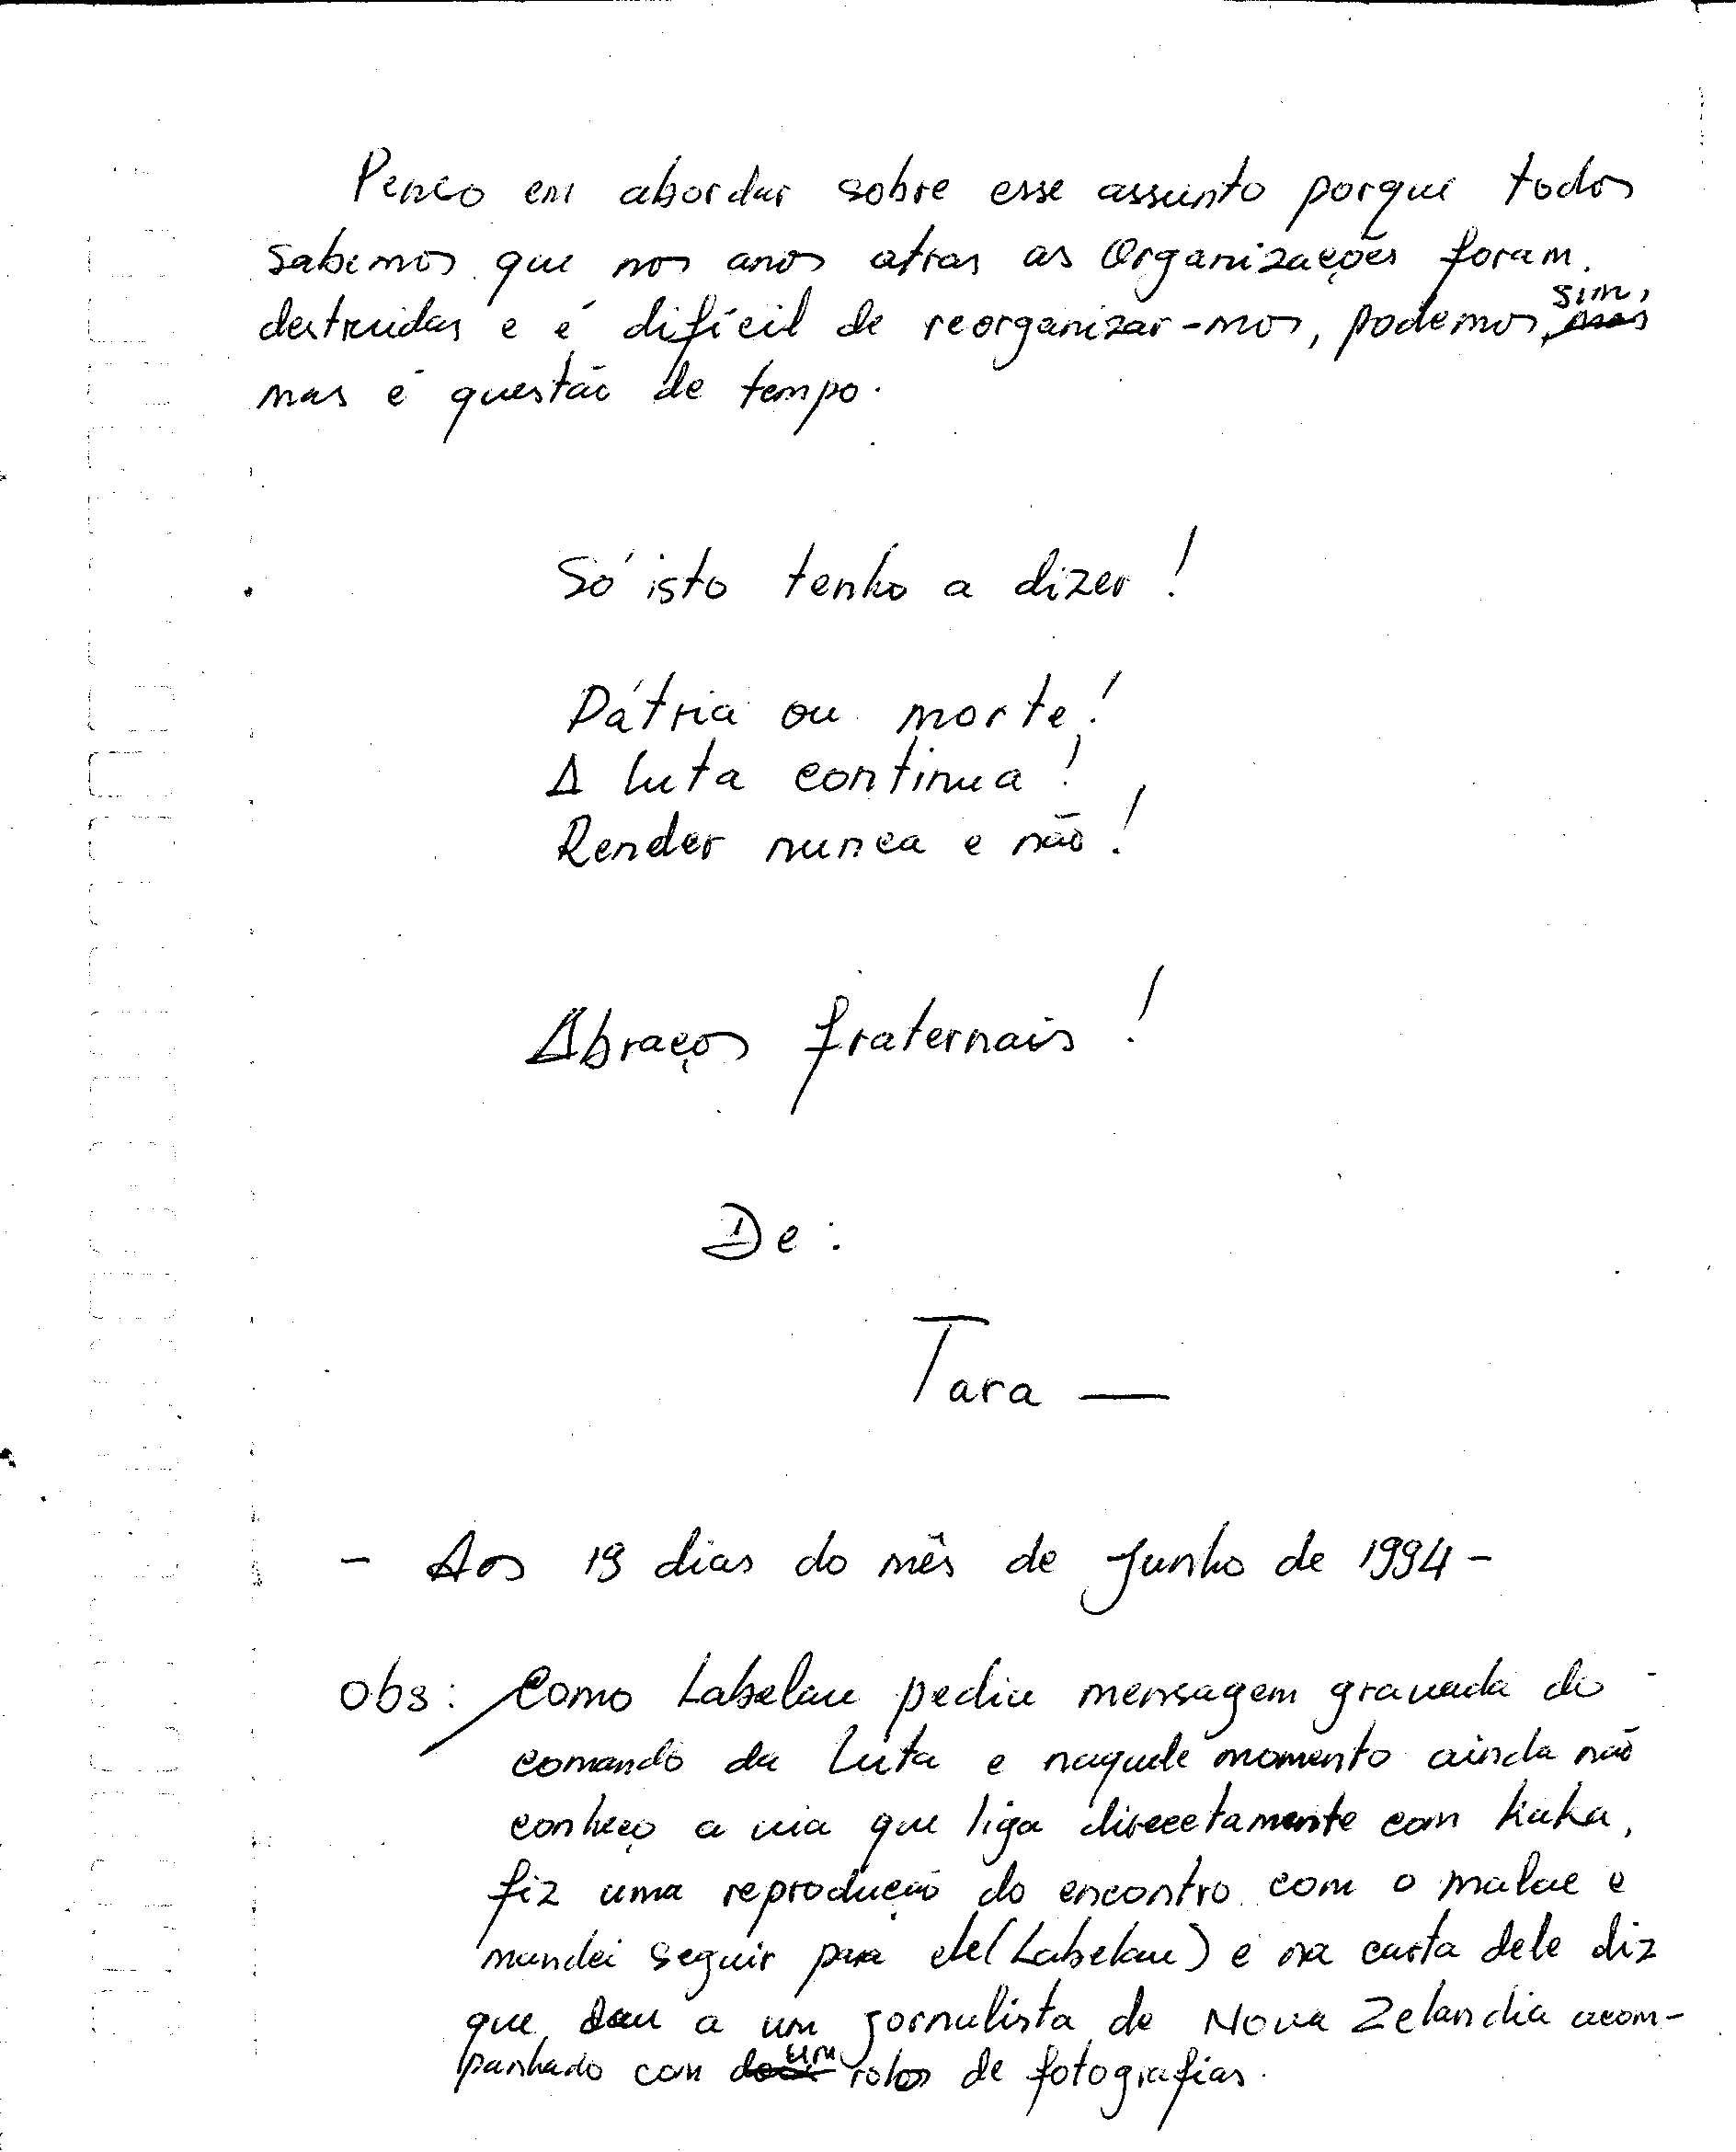 Penso em abordar sobre esse assunto porque todos
sabemos que nos anos atras as Organizações foram
destruidas e é difícil de reorganizar-mos, podemos sim, mas
mas é questão de tempo.
Só isto tenho a dizer!
Pátria ou morte!
A luta continua!
Render nunca e não!
Abraços fraternais!
De:
Tara —
- Aos 19 dias do mês de Junho de 1994 -
Obs: Como Labelau pediu mensagem gravada do
comando da Luta e naquele momento ainda não
conheço a via que liga direcctamente com Kaka,
fiz uma reprodução do encontro com o malae e
mandei seguir para ele (Labelau) e na carta dele diz
que deu a um jornalista de Nova Zelandia acom-
panhado com um rolos de fotografias.